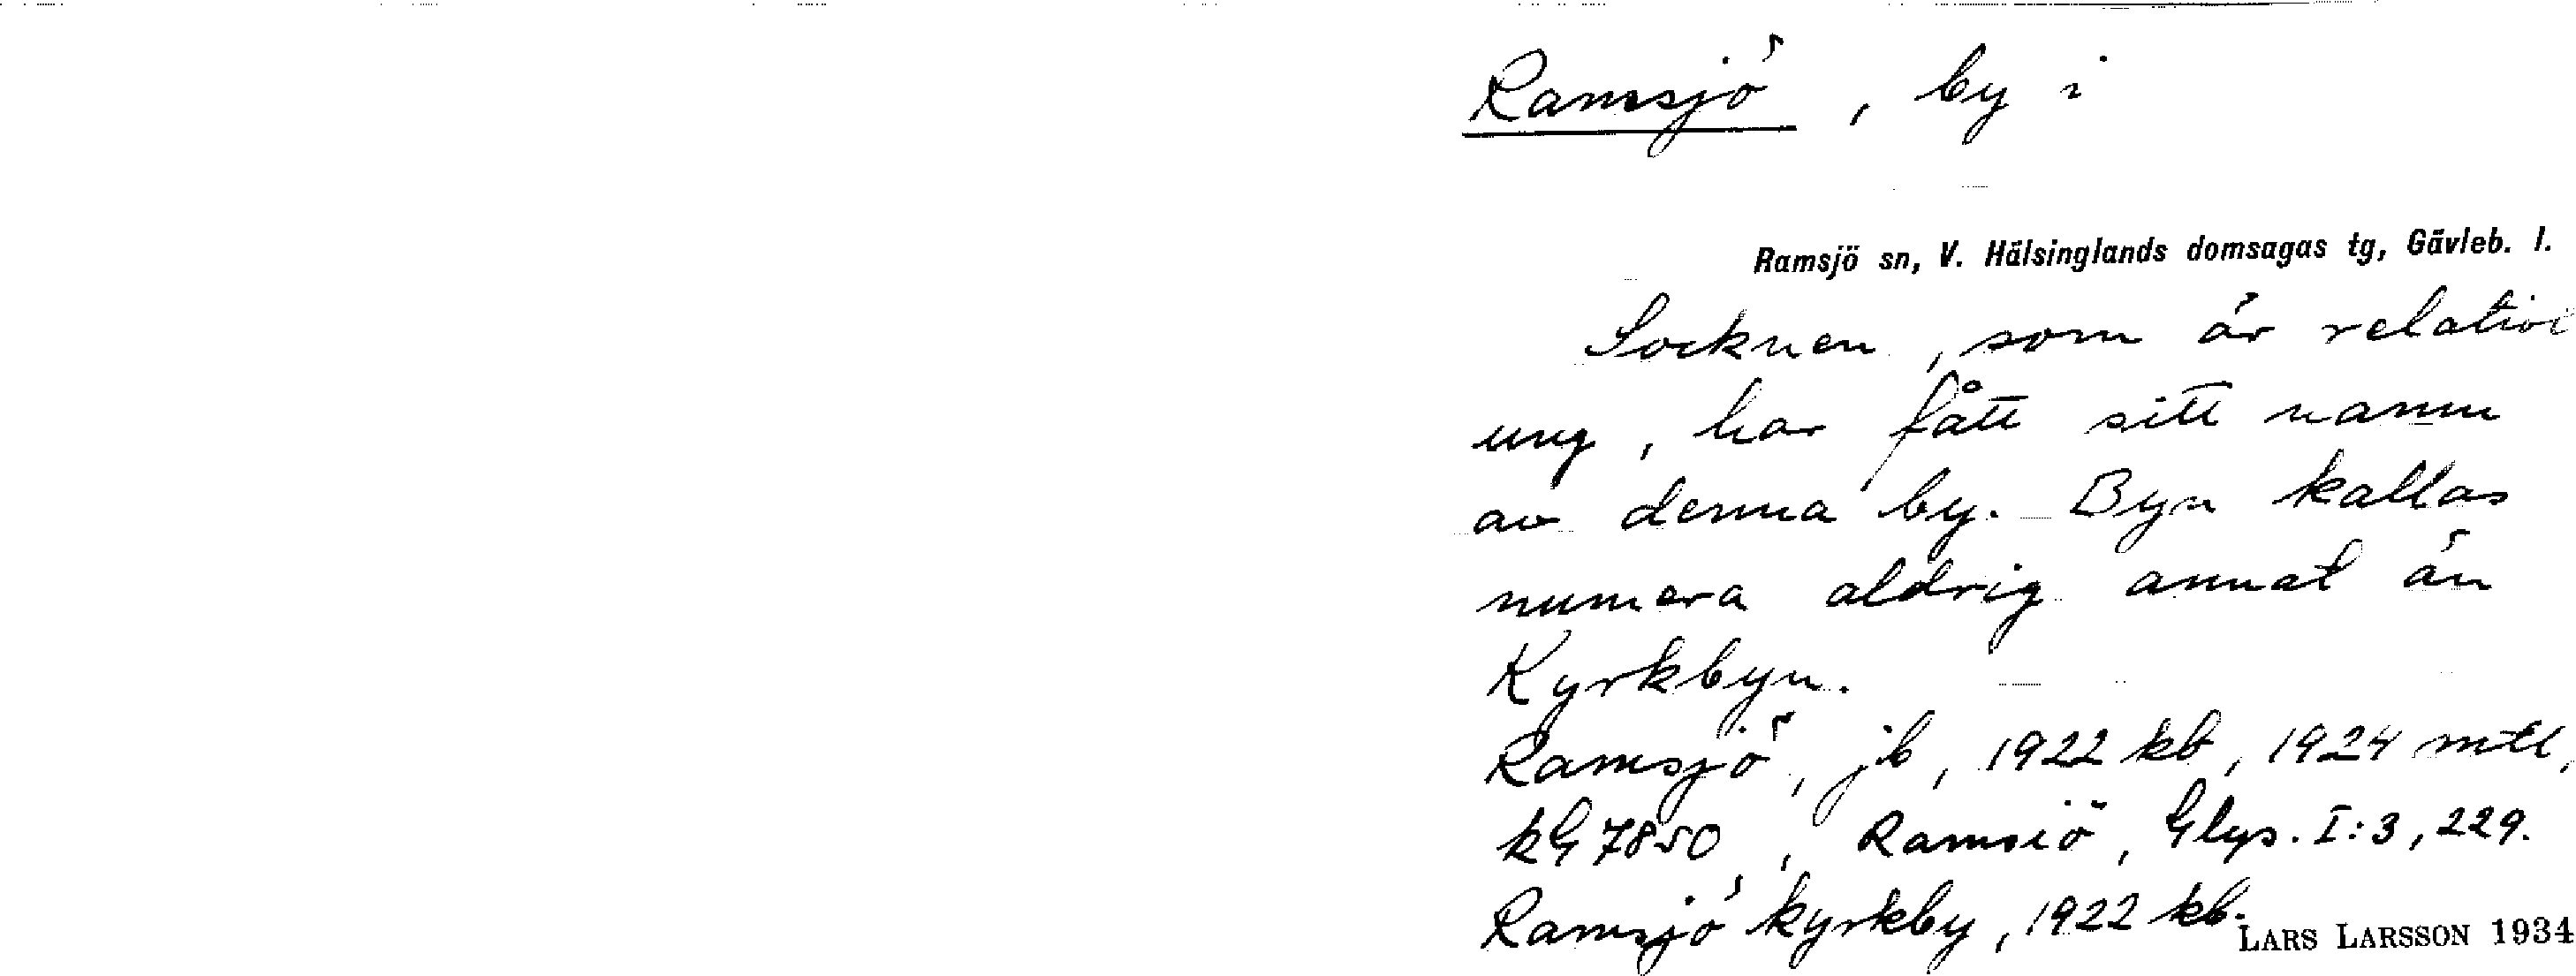 Ramsjö, by i
Ramsjö sn, V. Hälsinglands domsagas tg, Gävleb. l.
Socknen, som är relativt
ung, har fått sitt namn
av denna by. Byn kallas
numera aldrig annat än
Kyrkbyn.
Ramsjö, jb, 1922 kb, 1924 mtl,
kG 7850, Ramsiö, Glys. I:3, 229.
Ramsjö kyrkby, 1922 kb.
LARS LARSSON 1934